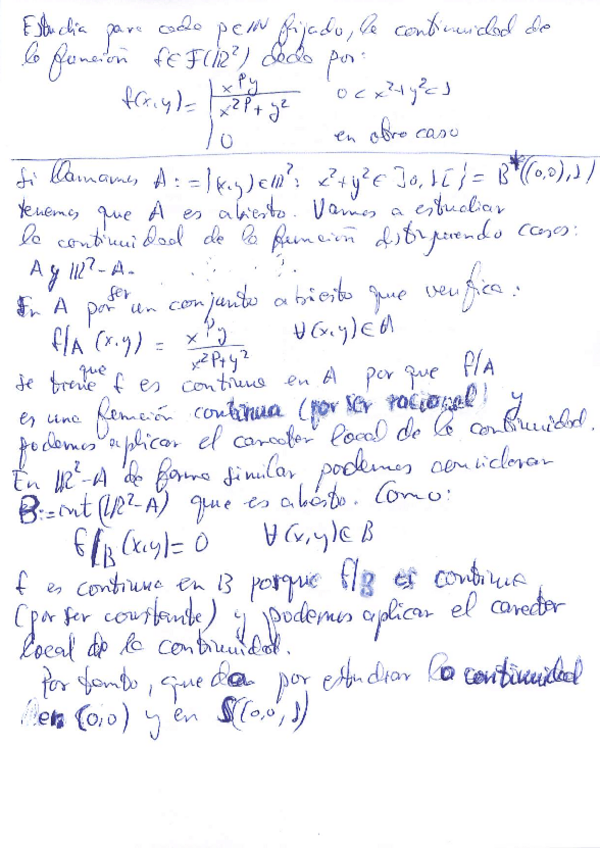 Estudia para cada p∈ℕ fijado, la continuidad de
la función f∈F(ℝ²) dada por:
f(x,y) = | x^p y / (x^2p + y²)   0 < x²+y² < 1
| 0   en otro caso
Si llamamos A := {(x,y)∈ℝ²: x²+y² ∈ ]0,1[} = B*((0,0),1)
tenemos que A es abierto. Vamos a estudiar
la continuidad de la función distinguiendo casos:
A y ℝ²-A.
En A por ser un conjunto abierto que verifica:
f/A (x,y) = x^p y / (x^2p + y²)   ∀(x,y)∈A
se tiene que f es continua en A por que f/A
es una función continua (por ser racional) y
podemos aplicar el caracter local de la continuidad.
En ℝ²-A de forma similar podemos considerar
B:=int(ℝ²-A) que es abierto. Como:
f/B (x,y) = 0   ∀(x,y)∈B
f es continua en B porque f/B es continua
(por ser constante) y podemos aplicar el caracter
local de la continuidad.
Por tanto, queda por estudiar la continuidad
en (0,0) y en S((0,0,1)